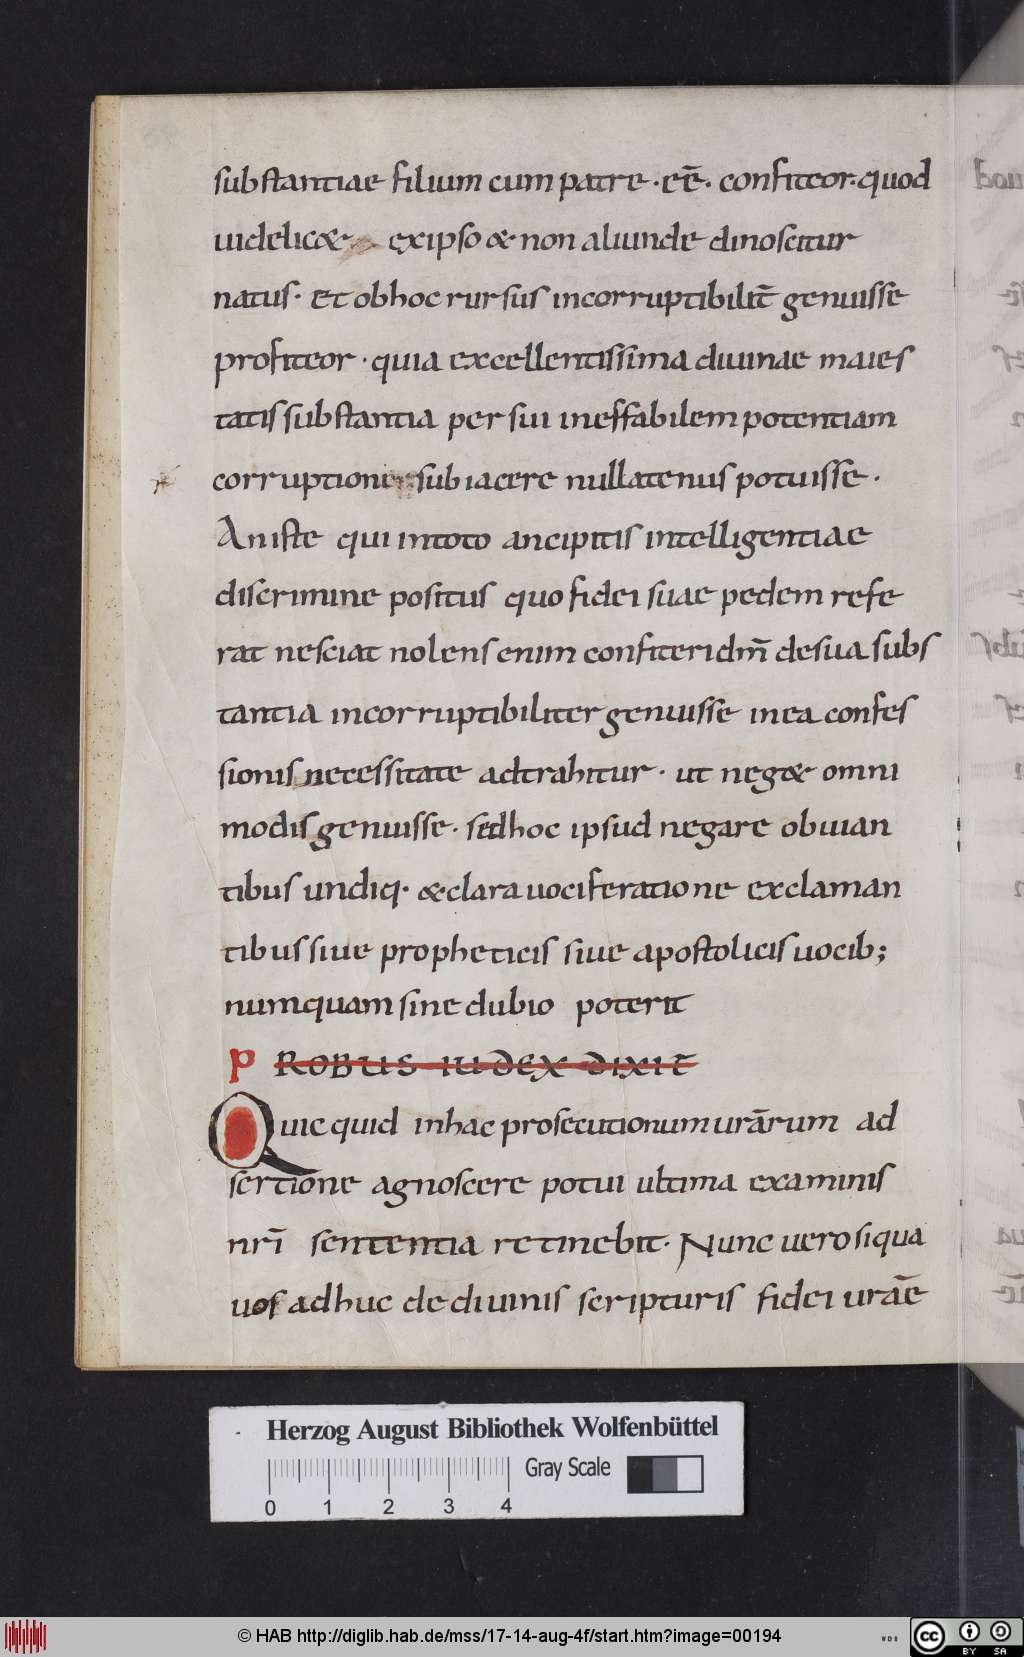 substantiae filium cum patre · eē · confiteor · quod
uidelic& ex ipso & non aliunde dinoscitur
natus · Et ob hoc rursus incorruptibilit̄ genuisse
profiteor · quia excellentissima diuinae maies
tatis substantia per sui ineffabilem potentiam
corruptione subiacere nullatenus potuisse ·
An iste qui in toto ancipitis intelligentiae
discrimine positus quo fidei suae pedem refe
rat nesciat nolens enim confiteri dm̄ de sua subs
tantia incorruptibiliter genuisse in ea confes
sionis necessitate adtrahitur · ut neg& omni
modis genuisse · sed hoc ipsud negare obuian
tibus undiq· & clara uociferatione exclaman
tibus siue propheticis siue apostolicis uocib;
numquam sine dubio poterit
PROBUS IUDEX DIXIT
Quicquid in hac prosecutionum urārum ad
sertione agnoscere potui ultima examinis
nrī sententia retinebit · Nunc uero si qua
uos adhuc de diuinis scripturis fidei uraē
Herzog August Bibliothek Wolfenbüttel
Gray Scale
0 1 2 3 4
© HAB http://diglib.hab.de/mss/17-14-aug-4f/start.htm?image=00194
WDB
cc BY SA